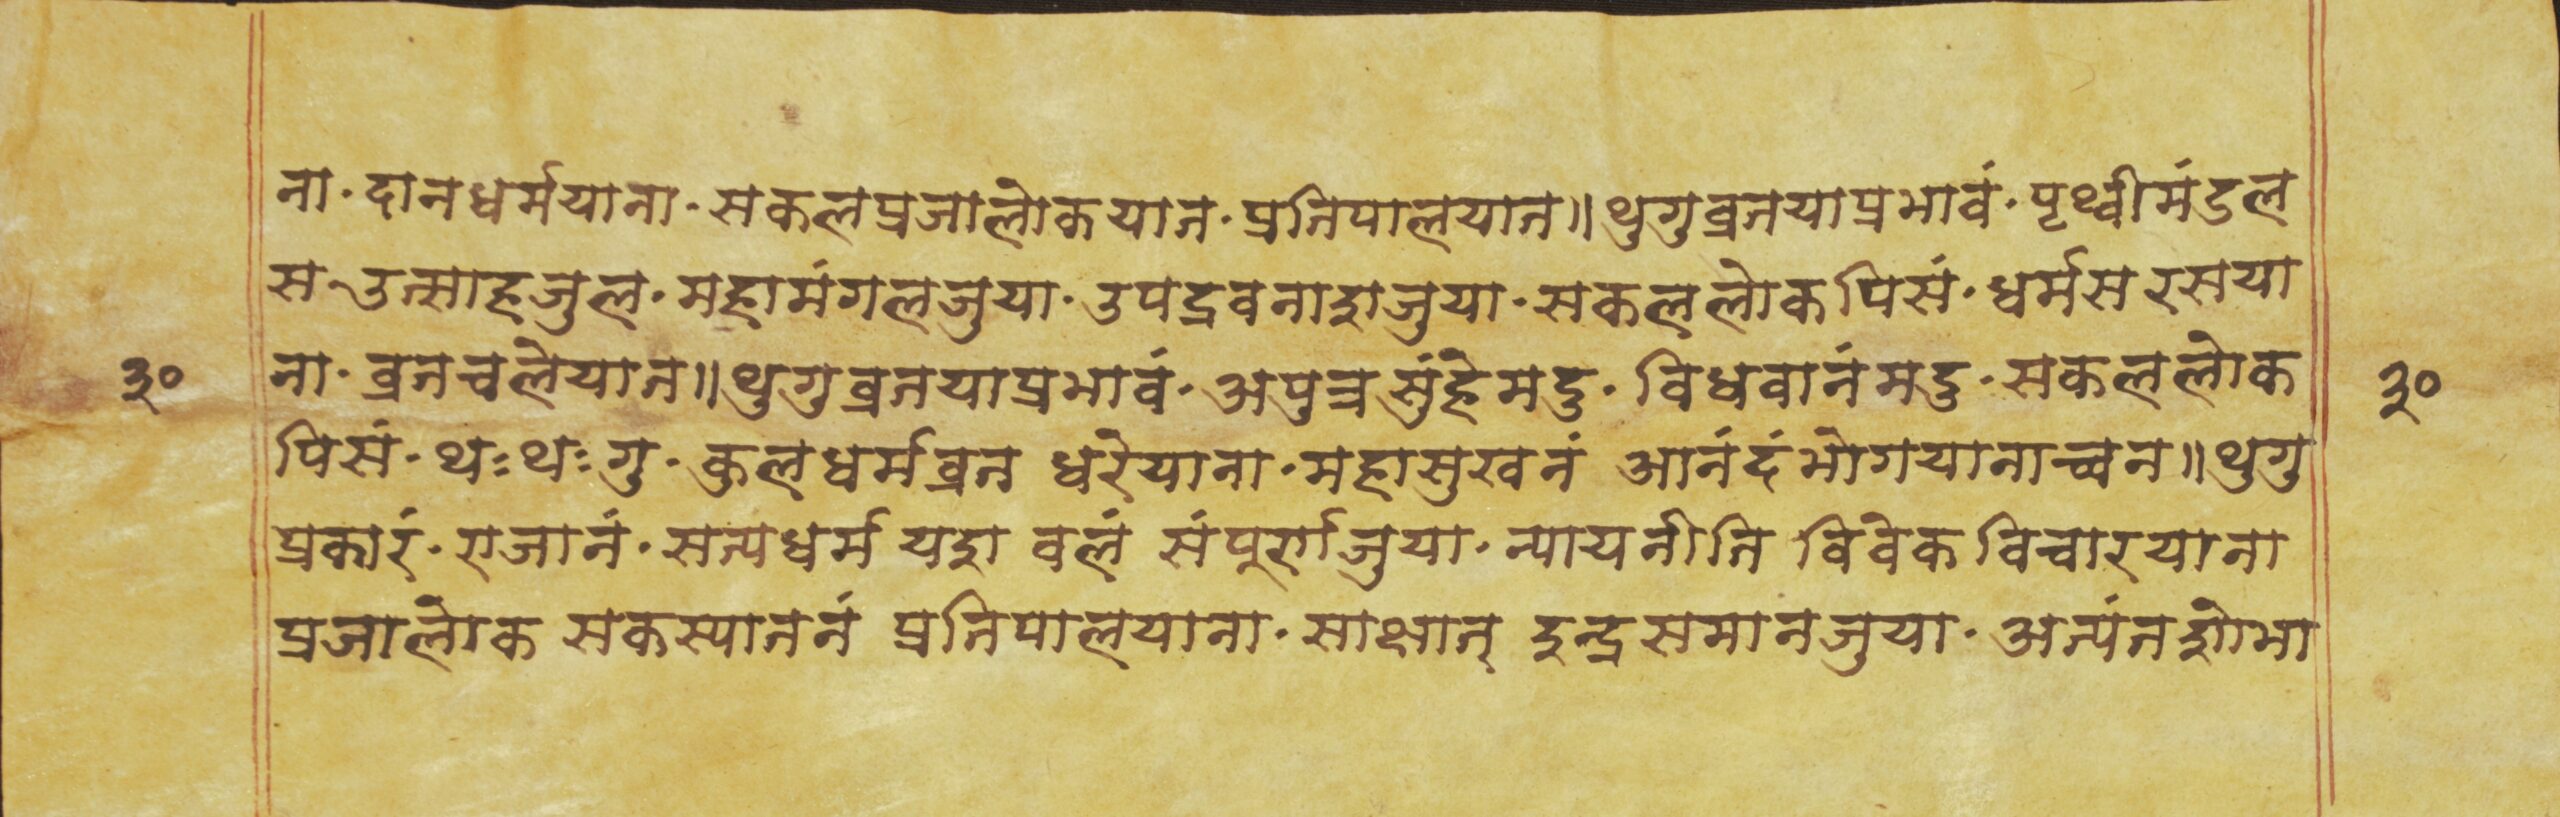 ना · दानधर्मयाना · सकलप्रजालोकयात · प्रतिपालयात॥ थुगुव्रतयाप्रभावं · पृथ्वीमंडल
स · उत्साहजुल · महामंगलजुया · उपद्रवनाशजुया · सकललोकपिसं · धर्मसरसया
३० ना · व्रतचलेयात॥ थुगुव्रतयाप्रभावं · अपुत्रसुंहेमदु · विधवानंमदु · सकललोक ३०
पिसं · थःथःगु · कुलधर्मव्रत धरेयाना · महासुखनं आनंदंभोगयानाच्वन॥ थुगु
प्रकारं · राजानं · सत्यधर्म यश वलं संपूर्णजुया · न्यायनीति विवेक विचारयाना
प्रजालोक सकस्यातनं प्रतिपालयाना · साक्षात् इन्द्रसमानजुया · अत्यंतशोभा